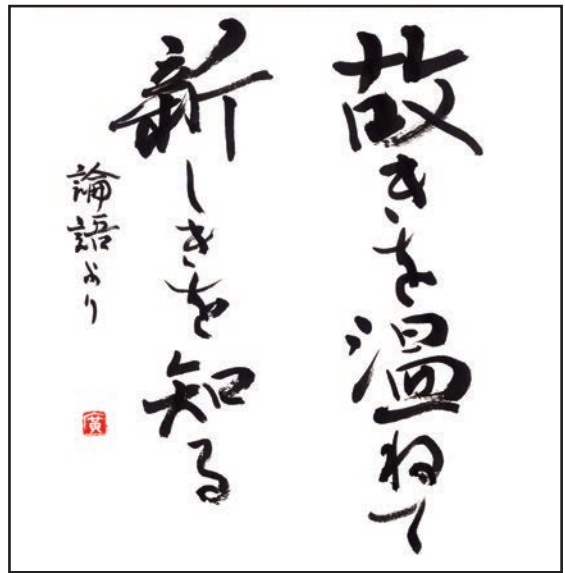 故きを温ねて
新しきを知る
論語より
廣